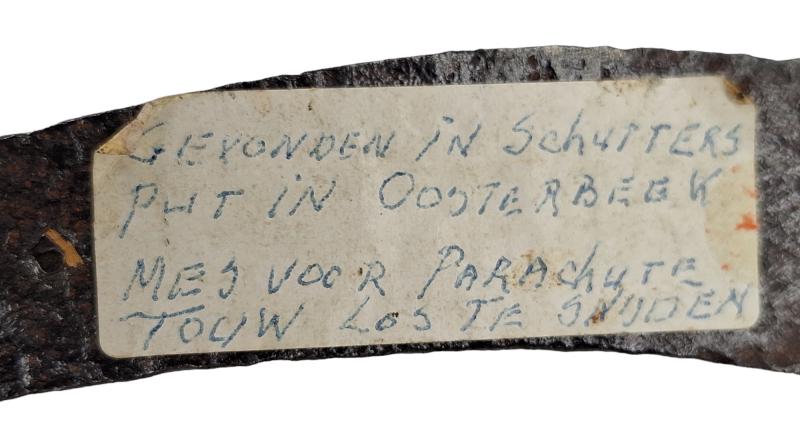 GEVONDEN IN SCHUTTERS
PUT IN OOSTERBEEK
MES VOOR PARACHUTE
TOUW LOS TE SNIJDEN